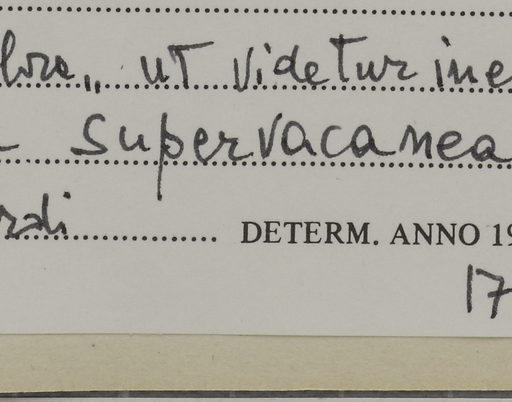 lora„ ut videtur ine
supervacanea
rdi DETERM. ANNO 19
17